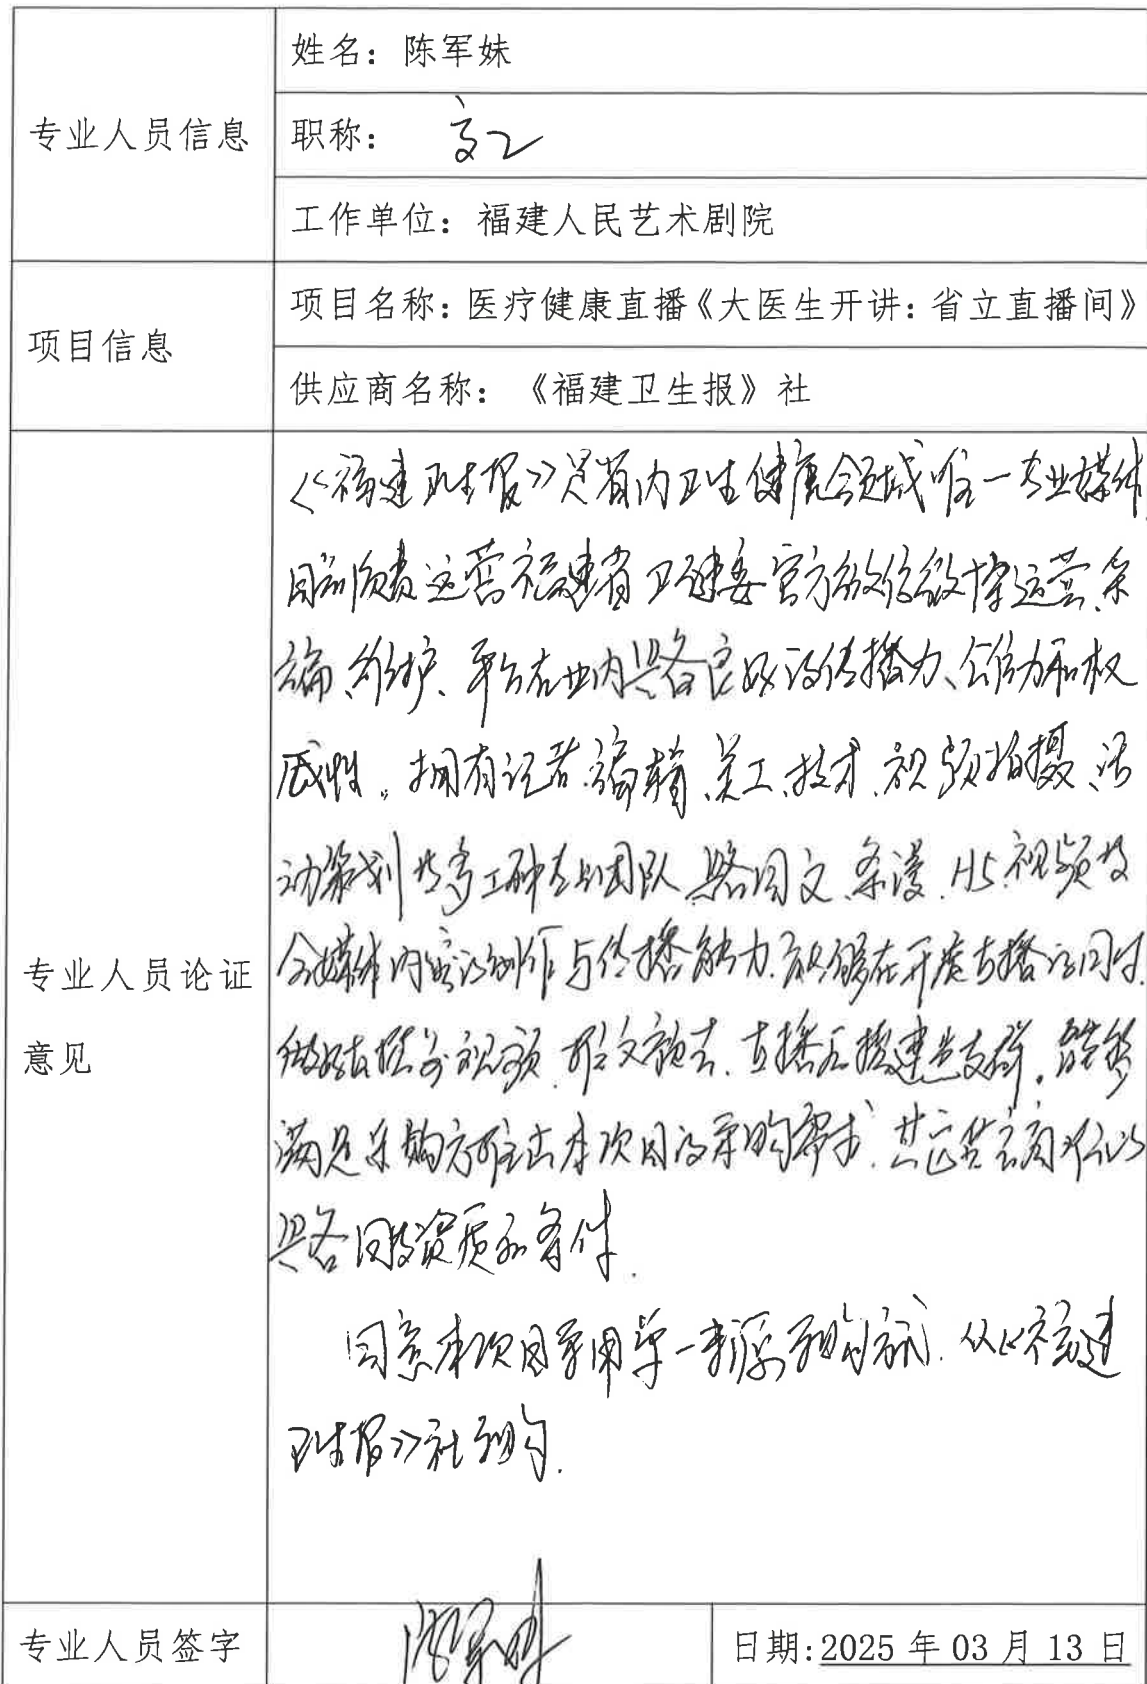 专业人员信息
姓名：陈军妹
职称：高工
工作单位：福建人民艺术剧院
项目信息
项目名称：医疗健康直播《大医生开讲：省立直播间》
供应商名称：《福建卫生报》社
专业人员论证
意见
《福建卫生报》是省内卫生健康领域唯一专业媒体
目前负责运营福建省卫健委官方微信微博运营、采
编、维护、平台在业内具备良好的传播力、公信力和权
威性。拥有记者、编辑、美工、技术、视频拍摄、活
动策划等多工种专业团队,具备图文、条漫、H5、视频等
全媒体内容的制作与传播能力,能够在开展直播的同时,
做好直播前视频、推文预告、直播后搭建患友群。能够
满足采购方在本次项目的采购需求,其它供应商难以
具备同等资质和条件.
同意本项目采用单一来源采购方式,从《福建
卫生报》社采购.
专业人员签字
陈军妹
日期:2025 年 03 月 13 日